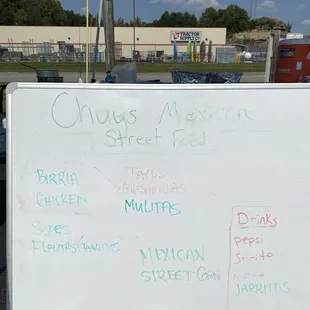 TRACTOR SUPPLY CO
Chuys Mexican
Street Food
BIRRIA
CHICKEN
TACOS
QUESADILLAS
MULITAS
MEXICAN
STREET CORN
Drinks
pepsi
Sprite
JARRITOS